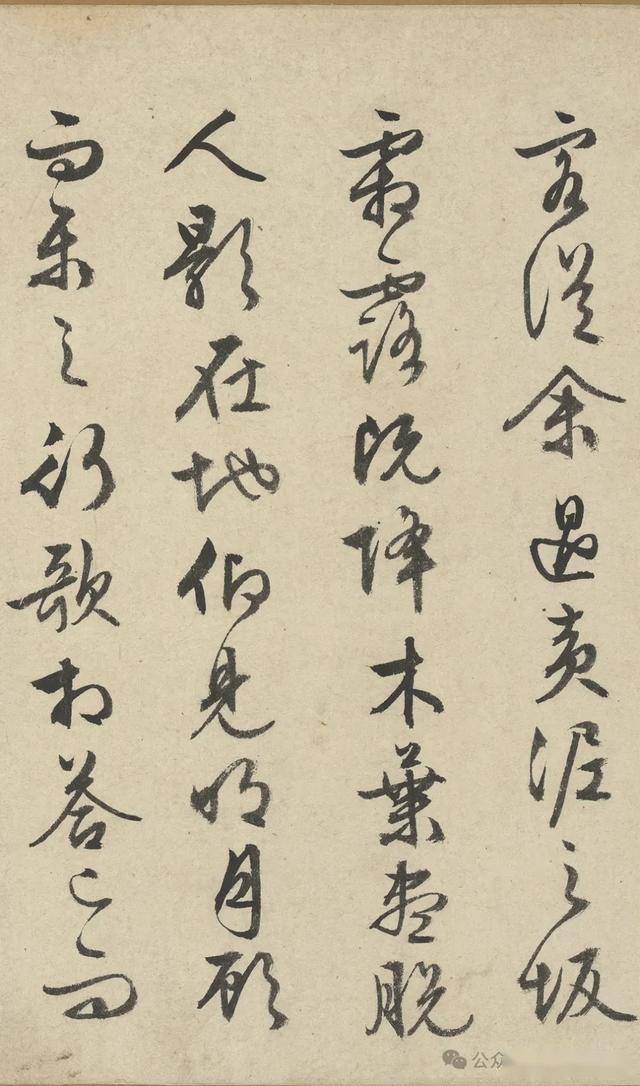 客從余過黃泥之坂
霜露既降木葉盡脫
人影在地仰見明月顧
而樂之行歌相答已而
公众